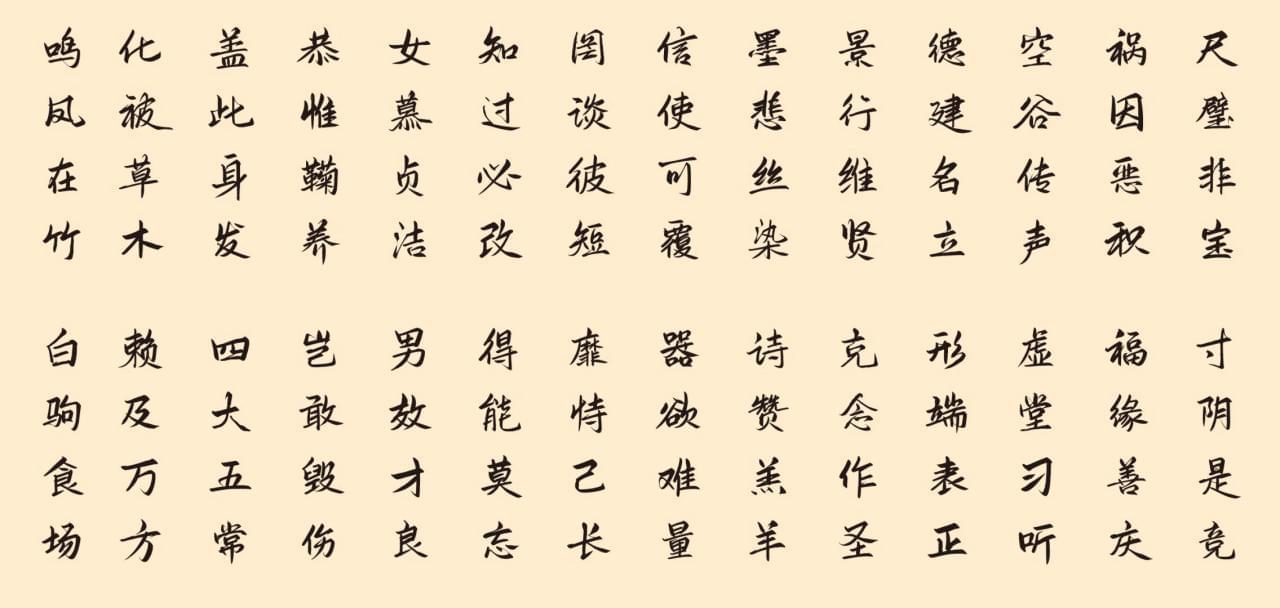 鸣凤在竹
白驹食场
化被草木
赖及万方
盖此身发
四大五常
恭惟鞠养
岂敢毁伤
女慕贞洁
男效才良
知过必改
得能莫忘
罔谈彼短
靡恃己长
信使可覆
器欲难量
墨悲丝染
诗赞羔羊
景行维贤
克念作圣
德建名立
形端表正
空谷传声
虚堂习听
祸因恶积
福缘善庆
尺璧非宝
寸阴是竞